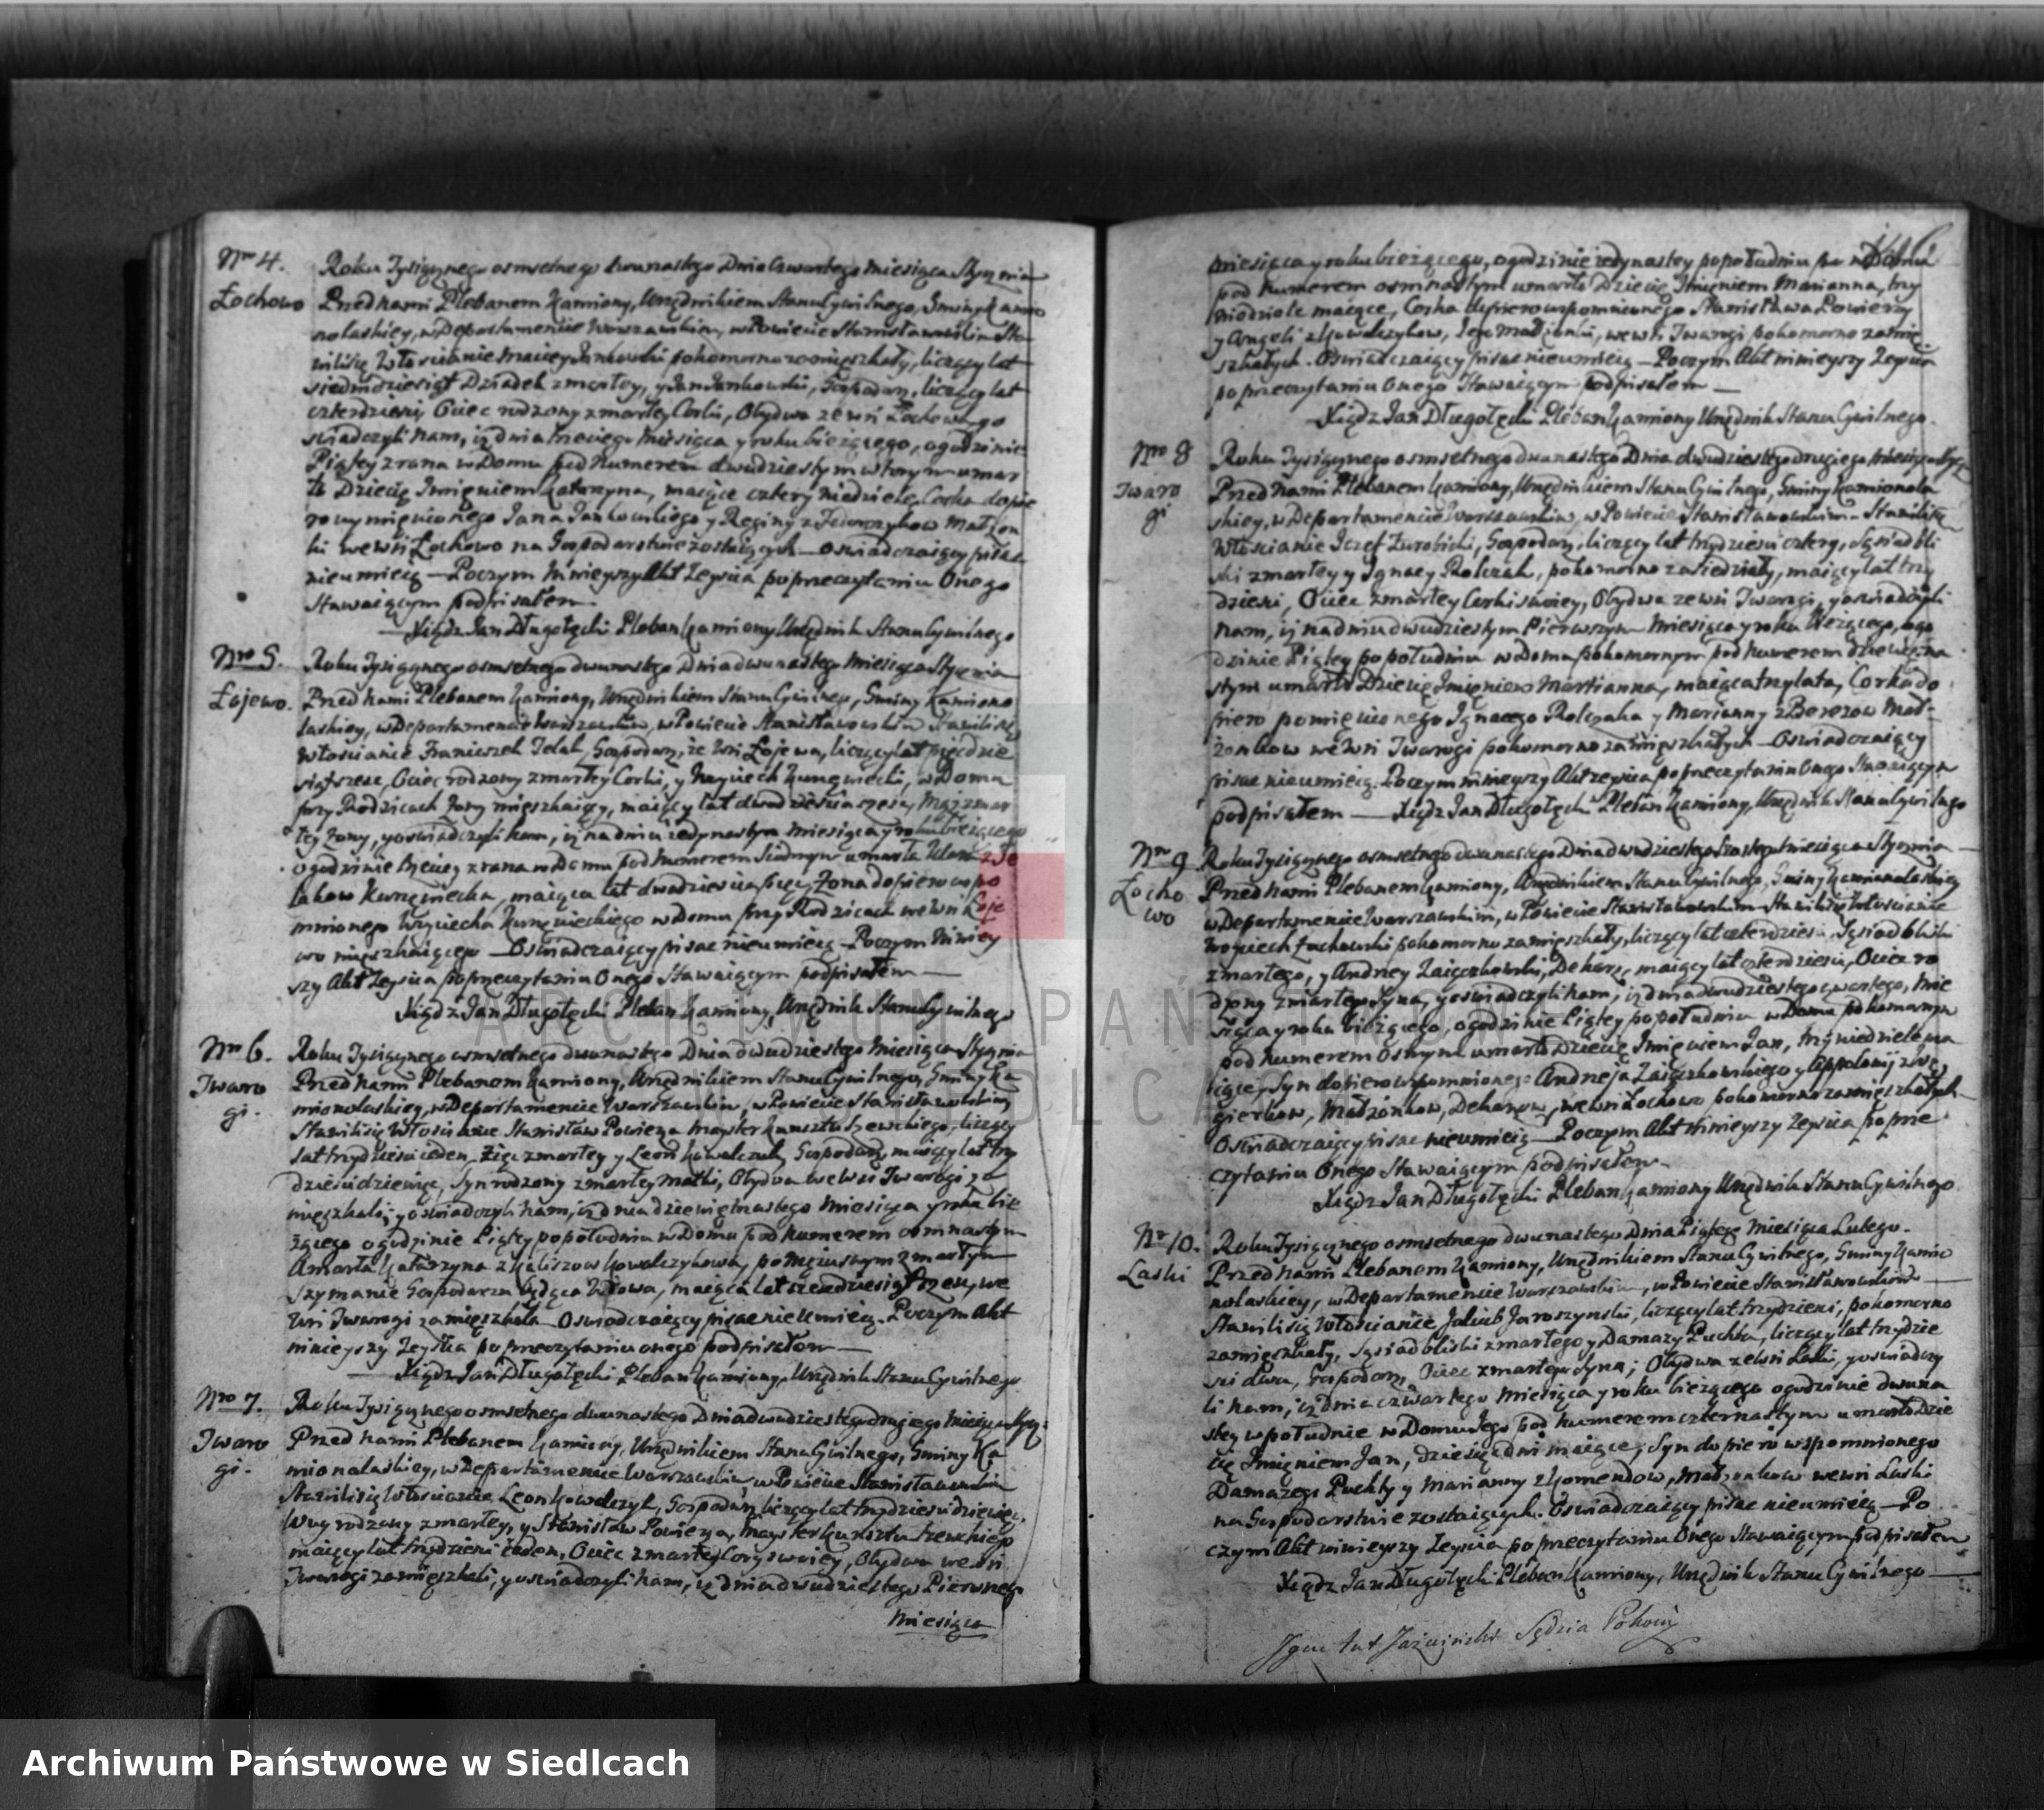 Nro 4.
Łochowo
Roku Tysiącznego osmsetnego dwunastego Dnia Czwartego Miesiąca Stycznia
Przed nami Plebanem Kamiony, Urzędnikiem Stanu Cywilnego, Gminy Kamio
nolaskiey, w Departamencie Warszawskim, w Powiecie Stanisławowskim Sta
wili się Włoscianie Maciey Jankowski pokomorno zamięszkały, liczący lat
siedmdziesiąt Dziadek zmarłey, y Jan Jankowski, Gospodarz, liczący lat
czterdzieści Ociec rodzony zmarłey Corki, Obydwa ze wsi Łochowa, yo
świadczyli Nam, iż dnia trzeciego Miesiąca y roku bieżącego, o godzinie
Piątey z rana w Domu pod Numerem dwudziestym wtorym umar
ło Dziecię Imieniem Katarzyna, maiące cztery niedziele, Corka dopie
ro wymięnionego Jana Jankowskiego y Reginy z Fedorczykow Małżon
ki we wsi Łochowo na Gospodarstwie zostaiących — oswiadczaiący pisac
nieumieią — Poczym Ninieyszy Akt Zeyscia po przeczytaniu Onego
Stawaiącym podpisałem
Xiądz Jan Długołęcki Pleban Kamiony Urzędnik Stanu Cywilnego
Nro 5.
Łojewo.
Roku Tysiącznego osmsetnego dwunastego Dnia dwunastego Miesiąca Stycznia
Przed nami Plebanem Kamiony, Urzędnikiem Stanu Cywilnego, Gminy Kamiono
laskiey, w Departamencie Warszawskim, w Powiecie Stanisławowskim Stawili się
Włoscianie Franciszek Jelak, Gospodarz, ze Wsi Łojewa, liczący lat pięćdzie
siąt szesc, Ociec rodzony zmarłey Corki, y Woyciech Kurzęwiecki, w Domu
przy Rodzicach Żony mięszkaiący, maiący lat dwadziescia szesc, Mąż zmar
łey Żony, y oswiadczyli Nam, iż na dniu iedynastym Miesiąca y roku bieżącego
o godzinie trzeciey z rana w Domu pod Numerem Siodmym umarła z Je
lakow Kurzęwiecka, maiąca lat dwadziescia pięć, Żona dopiero wspo
mnionego Woyciecha Kurzęwieckiego w Domu przy Rodzicach we Wsi Łoje
wo mięszkaiącego — Oswiadczaiący pisac nieumieią — Poczym Niniey
szy Akt Zeyscia po przeczytaniu Onego Stawaiącym podpisałem —
Xiądz Jan Długołęcki Pleban Kamiony, Urzędnik Stanu Cywilnego
Nro 6.
Twaro
gi.
Roku Tysiącznego osmsetnego dwunastego Dnia dwudziestego Miesiąca Stycznia
Przed nami Plebanem Kamiony, Urzędnikiem Stanu Cywilnego, Gminy Ka
mionolaskiey, w Departamencie Warszawskim, w Powiecie Stanisławowskim
Stawili się Włoscianie Stanisław Powierza Mayster Kunsztu Szewckiego, liczący
lat trzydziesci ieden, Zięć zmarłey y Leon Kowalczyk, Gospodarz, maiący lat trzy
dziesci dziewięć, Syn rodzony zmarłey matki, Obydwa we wsi Twarogi za
mięszkali, y oswiadczyli Nam, iż dnia dziewiętnastego Miesiąca y roku bie
żącego o godzinie Piątey popołudniu w Domu pod Numerem osmnastym
Umarła Katarzyna z Kaliszow Kowalczykowa, po Mężu swym Zmarłym
Szymanie Gospodarzu będąca Wdowa, maiąca lat szescdziesiąt szesc, we
Wsi Twarogi zamięszkała — Oswiadczaiący pisac nieumieią. Poczym Akt
ninieyszy Zeyscia po przeczytaniu onego podpisałem —
Xiądz Jan Długołęcki Pleban Kamiony, Urzędnik Stanu Cywilnego
Nro 7.
Twaro
gi.
Roku Tysiącznego osmsetnego dwunastego Dnia dwudziestego drugiego Miesiąca Stycz:
Przed Nami Plebanem Kamiony, Urzędnikiem Stanu Cywilnego, Gminy Ka
mionolaskiey, w Departamencie Warszawskim, w Powiecie Stanisławowskim
Stawili się Włoscianie Leon Kowalczyk, Gospodarz, liczący lat trzydziesci dziewięć,
Wuy rodzony zmarłey, y Stanisław Powierza, Mayster Kunsztu Szewckiego
maiący lat trzydziesci ieden, Ociec zmarłey Cory swoiey, Obydwa we Wsi
Twarogi zamięszkali, y oswiadczyli Nam, iż dnia dwudziestego Pierwszego
Miesiąca
miesiąca y roku bieżącego, o godzinie iedynastey popołudniu w Domu
pod Numerem osmnastym umarło Dziecię Imieniem Marianna, trzy
niedziele maiące, Corka dopiero wspomnionego Stanisława Powierzy
y Angeli z Kowalczykow, Jego Małżonki, we wsi Twarogi pokomorno zamię
szkałych. Oswiadczaiący pisac nieumieią — Poczym Akt ninieyszy Zeyscia
po przeczytaniu Onego Stawaiącym podpisałem —
Xiądz Jan Długołęcki Pleban Kamiony Urzędnik Stanu Cywilnego.
Nro 8
Twaro
gi
Roku Tysiącznego osmsetnego dwunastego Dnia dwudziestego drugiego Miesiąca Stycz
Przed Nami Plebanem Kamiony, Urzędnikiem Stanu Cywilnego, Gminy Kamionola
skiey, w Departamencie Warszawskim, w Powiecie Stanisławowskim — Stawili się
Włoscianie Jozef Zurobicki, Gospodarz, liczący lat trzydziesci cztery, Sąsiad bli
ski zmarłey y Ignacy Rolczak, pokomorno zasiedziały, maiący lat trzy
dziesci, Ociec zmarłey Corki swoiey, Obydwa ze wsi Twarogi, y oswiadczyli
Nam, iż na dniu dwudziestym Pierwszym Miesiąca y roku bieżącego, o go
dzinie Piątey popołudniu w Domu pokomornym pod Numerem dziewiętna
stym umarło Dziecię Imięniem Martianna, maiąca trzy lata, Corka do
piero pomięnionego Ignacego Rolczaka y Marianny z Berezow Mał-
żonkow we Wsi Twarogi pokomorno zamięszkałych — Oswiadczaiący
pisac nieumieią. Poczym ninieyszy Akt zeyscia po przeczytaniu Onego Stawaiącym
podpisałem — Xiądz Jan Długołęcki Pleban Kamiony, Urzędnik Stanu Cywilnego
Nro 9
Łocho
wo
Roku Tysiącznego osmsetnego dwunastego Dnia dwudziestego Szostego Miesiąca Stycznia
Przed Nami Plebanem Kamiony, Urzędnikiem Stanu Cywilnego, Gminy Kamionolaskiey
w Departamencie Warszawskim, w Powiecie Stanisławowskim Stawili się Włoscianie
Woyciech Zachowski pokomorno zamięszkały, liczący lat czterdziesci, Sąsiad bliski
zmarłego, y Andrzey Zaięczkowski, Dekarz, maiący lat czterdziesci, Ociec ro
dzony zmarłego Syna, y oswiadczyli Nam, iż dnia dwudziestego czwartego, Mie
siąca y roku bieżącego, o godzinie Piątey popołudniu w Domu pokomornym
pod Numerem Osmym umarło Dziecię Imięniem Jan, trzy niedziele ma
iące, Syn dopiero wspomnionego Andrzeja Zaięczkowskiego y Appolonij z Wę
gierkow, Małżonkow, Dekarzow, we wsi Łochowo pokomorno zamięszkałych
Oswiadczaiący pisac nieumieią — Poczym Akt Ninieyszy Zeyscia po prze
czytaniu Onego Stawaiącym podpisałem —
Xiądz Jan Długołęcki Pleban Kamiony Urzędnik Stanu Cywilnego
Nr 10.
Laski
Roku Tysiącznego osmsetnego dwunastego Dnia Piątego Miesiąca Lutego.
Przed Nami Plebanem Kamiony, Urzędnikiem Stanu Cywilnego, Gminy Kamio
nolaskiey, w Departamencie Warszawskim, w Powiecie Stanisławowskim —
Stawili się Włoscianie Jakub Jaroszynski, liczący lat trzydziesci, pokomorno
zamięszkały, Sąsiad bliski zmarłego y Damazy Puchta, liczący lat trzydzie
sci dwa, Gospodarz, Ociec zmarłego Syna; Obydwa ze Wsi Laski, y oswiadczy
li Nam, iż Dnia czwartego Miesiąca y roku bieżącego o godzinie dwuna
stey w południe w Domu Jego pod Numerem czternastym umarło Dzie
cię Imięniem Jan, dziesięć dni maiące, Syn dopiero wspomnionego
Damazego Puchty y Marianny z Komendow, Małżonkow we wsi Laski
na Gospodarstwie zostaiących. Oswiadczaiący pisac nieumieią — Po
czym Akt ninieyszy Zeyscia po przeczytaniu Onego Stawaiącym podpisałem
Xiądz Jan Długołęcki Pleban Kamiony, Urzędnik Stanu Cywilnego —
Jaźwiński Sędzia Pokoiu
ARCHIWUM PAŃSTWOWE
W SIEDLCACH
Archiwum Państwowe w Siedlcach